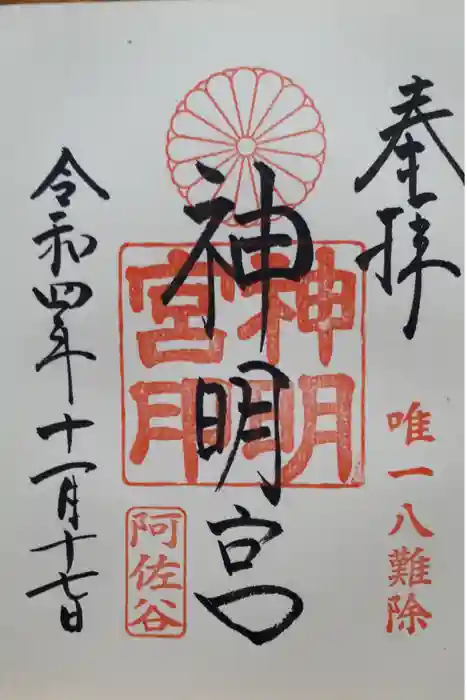 奉拝
唯一八難除
神明宮
神明宮月
阿佐谷
令和四年十一月十七日